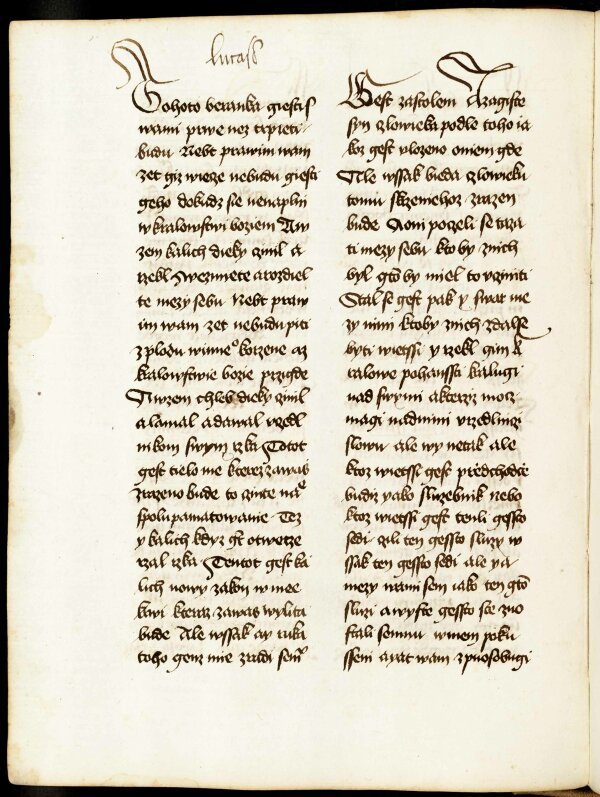 Lucass
Tohoto beranka giesti s
wami prwe nez trpieti
budu Nebt prawim wam
zet giz wieze nebudu giesti
geho dokudz sie nenaplni
w kralowstwi boziem A w
zem kalich dieky czinil a
rzekl Wezmete a rozdiel
te mezy sebu Nebt praw
im wam zet nebudu piti
z plodu winneo korzene az
kralowstwie bozie przigde
A wzem chleb dieky czinil
a lamal a dawal vczedl
nikom swym rzka Totot
gest tielo me kterez za was
zrazeno bude to czinte na
spolupamatowanie Tez
y kalich kdyz gt otweze
rzal rzka Tentot gest ka
lich nowy zakon w mee
krwi kteraz za was wylita
bude Ale wssak ay ruka
toho genz mie zradi semu
Gest za stolem A zagiste
syn czlowieka podle toho ia
koz gest vlozeno o niem gde
Ale wssak bieda czlowieku
tomu skrze niehoz zrazen
bude A oni poczeli se taza
ti mezy sebu kto by z nich
byl gto by miel to vcziniti
Stal se gest pak y swar me
zy nimi kto by z nich zdal se
byti wietssi y rzekl gim k
ralowe pohanssti kralugi
nad swymi a kterzz mocz
magi nad nimi vczedlnizi
slowu ale wy ne tak ale
ktoz wietssi gest przedchodce
budiz yako sluzebnik nebo
ktoz wietssi gest tenli gessto
sedi czili ten gessto sluzy w
ssak ten gessto sedi ale ya
mezy wami sem iako ten gto
sluzi a wy ste gessto ste zuo
stali se mnu w mem poku
sseni a yat wam zpuosobugi